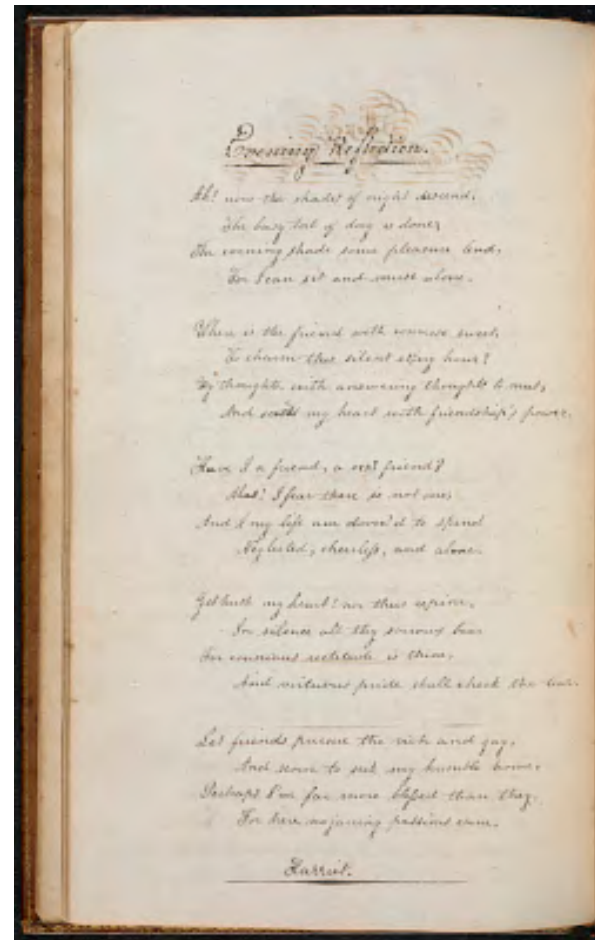 Evening Reflection.
Ah! now the shades of night descend.
The busy toil of day is done;
The evening shade some pleasure lend,
For I can sit and muse alone.
Where is the friend with converse sweet,
To charm this silent hour?
My thoughts with answering thoughts to meet,
And my heart with friendship's power.
Have I a friend, a friend?
Alas! I fear there is not one,
And I my life am doom'd to spend
Neglected, cheerless, and alone.
Yet hush my heart! nor thus repine,
In silence all thy sorrows bear
For conscious rectitude is thine,
And virtuous pride shall check the tear.
Let friends pursue the rich and gay,
And scorn to seek my humble
Perhaps I'm far more blessed than they.
For here no jarring passions come.
Harriet.